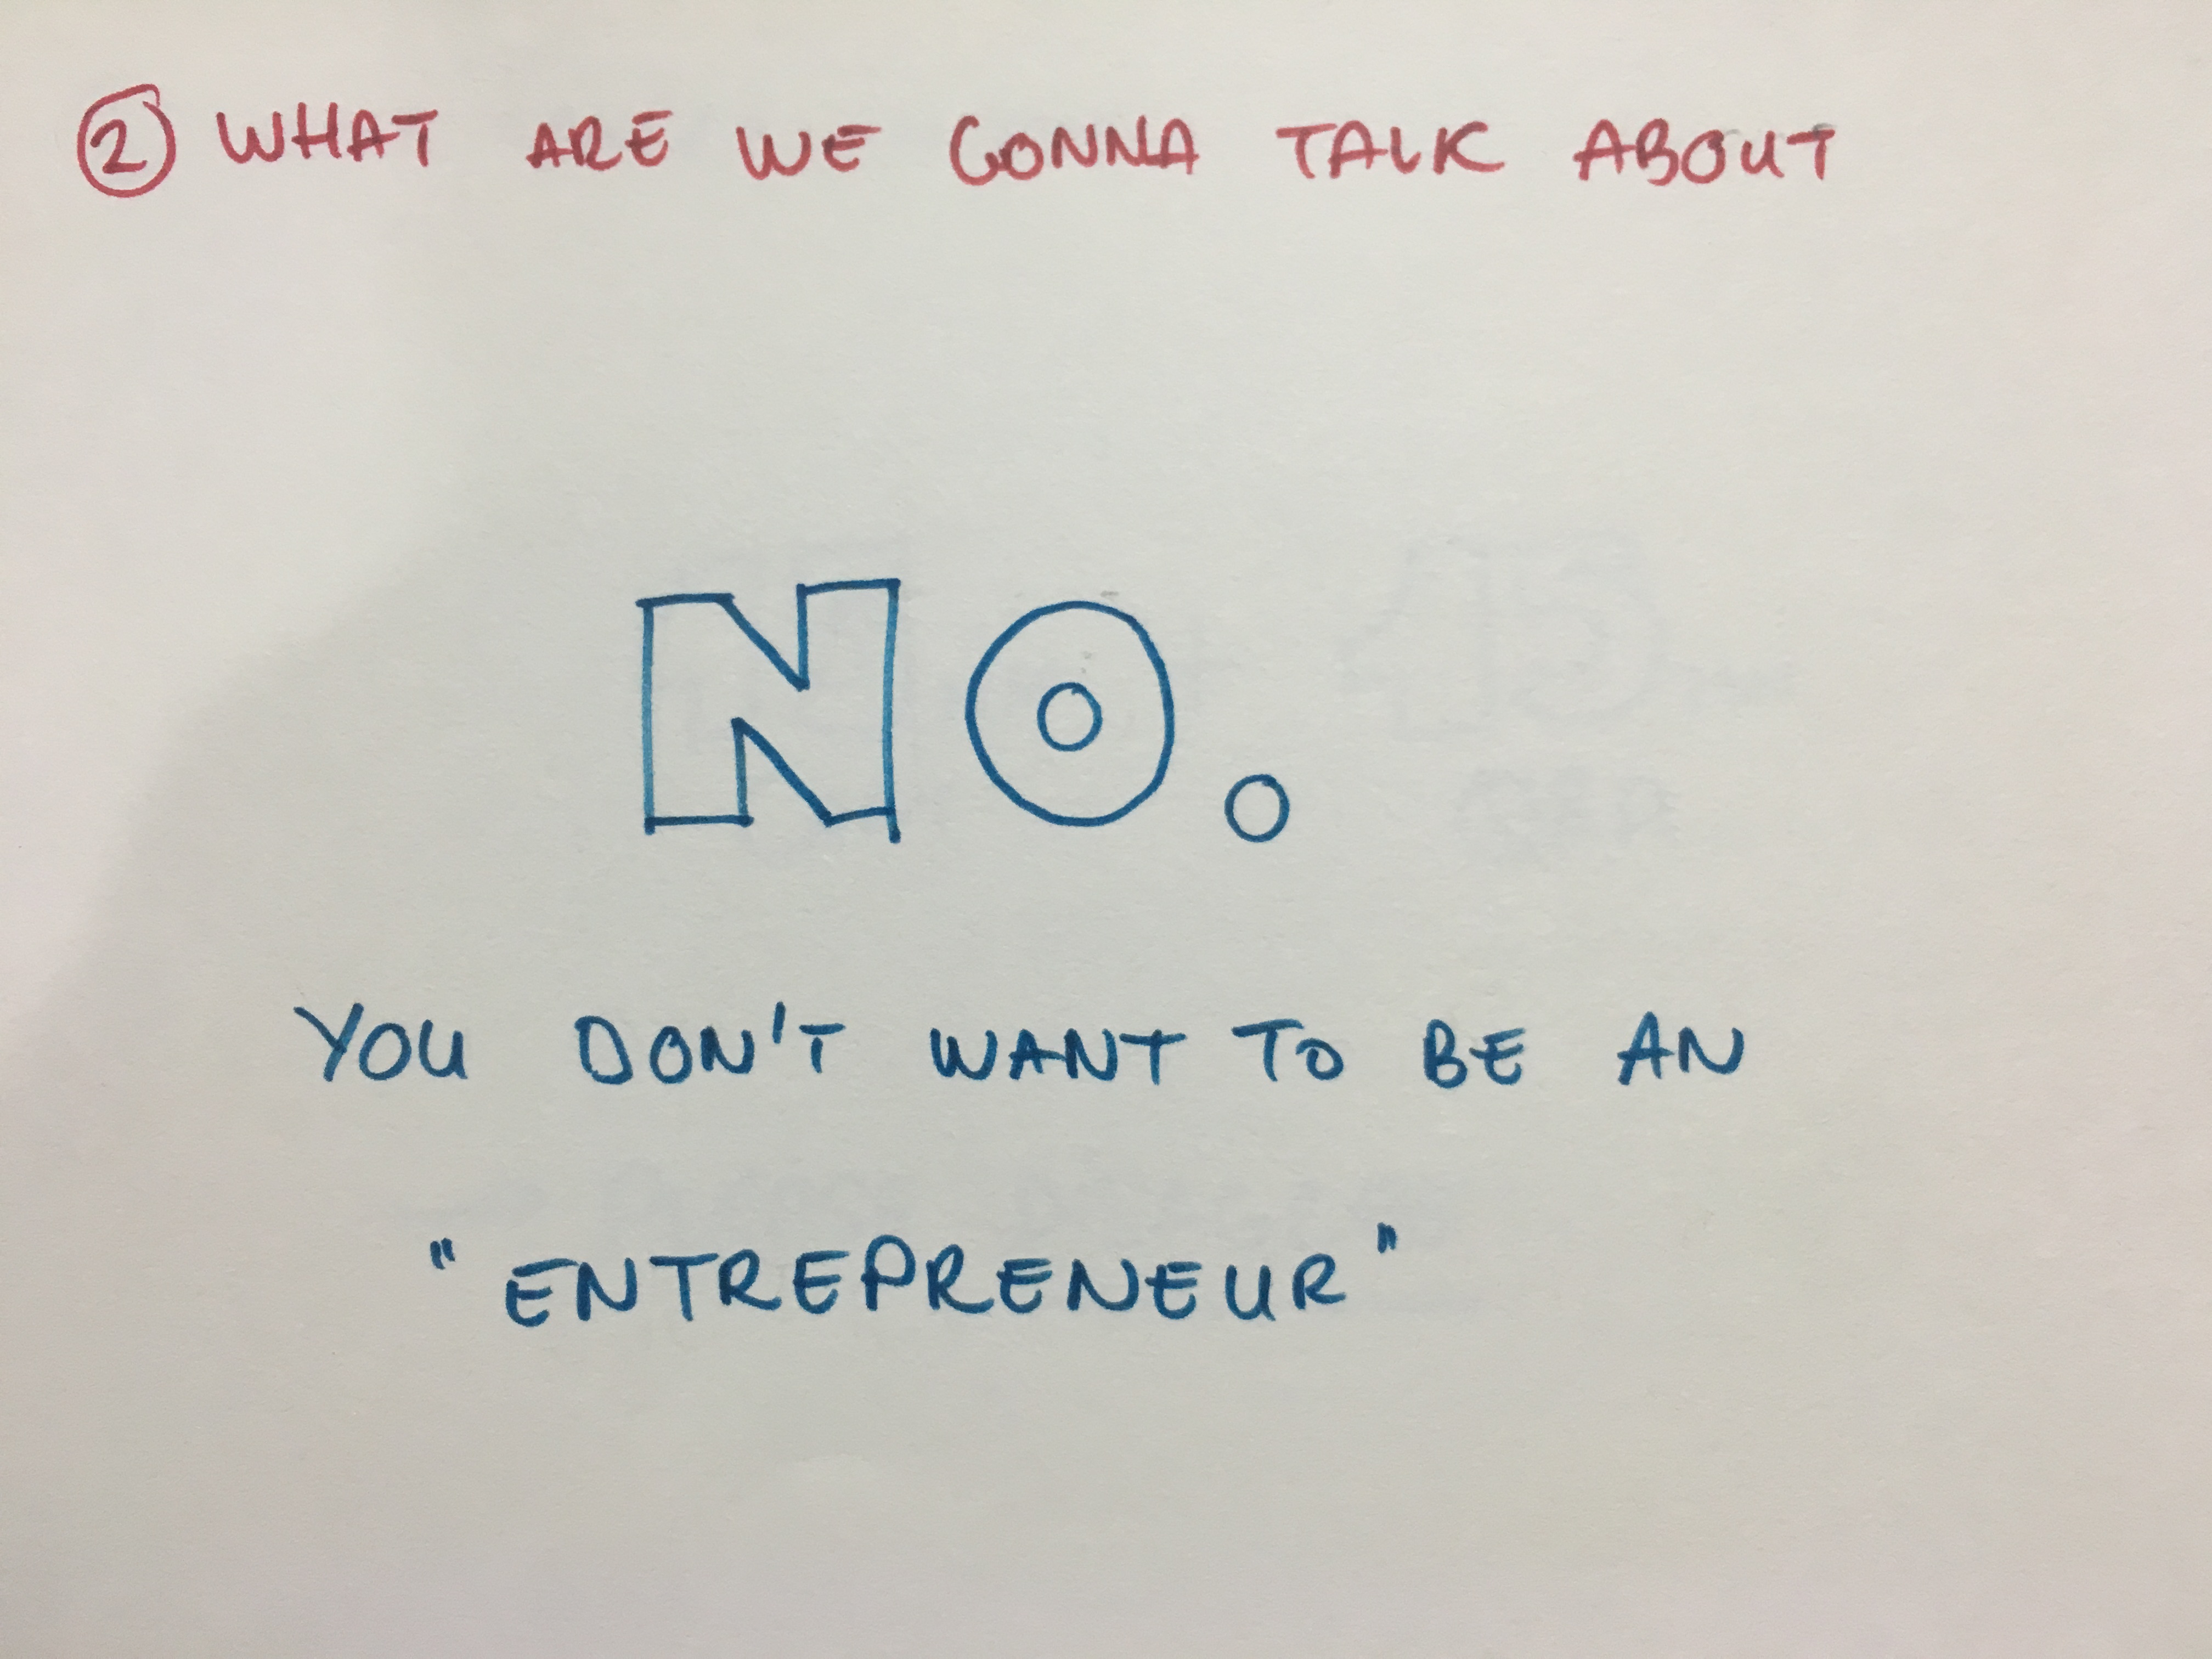 ② WHAT ARE WE GONNA TALK ABOUT
NO.
YOU DON'T WANT TO BE AN
"ENTREPRENEUR"